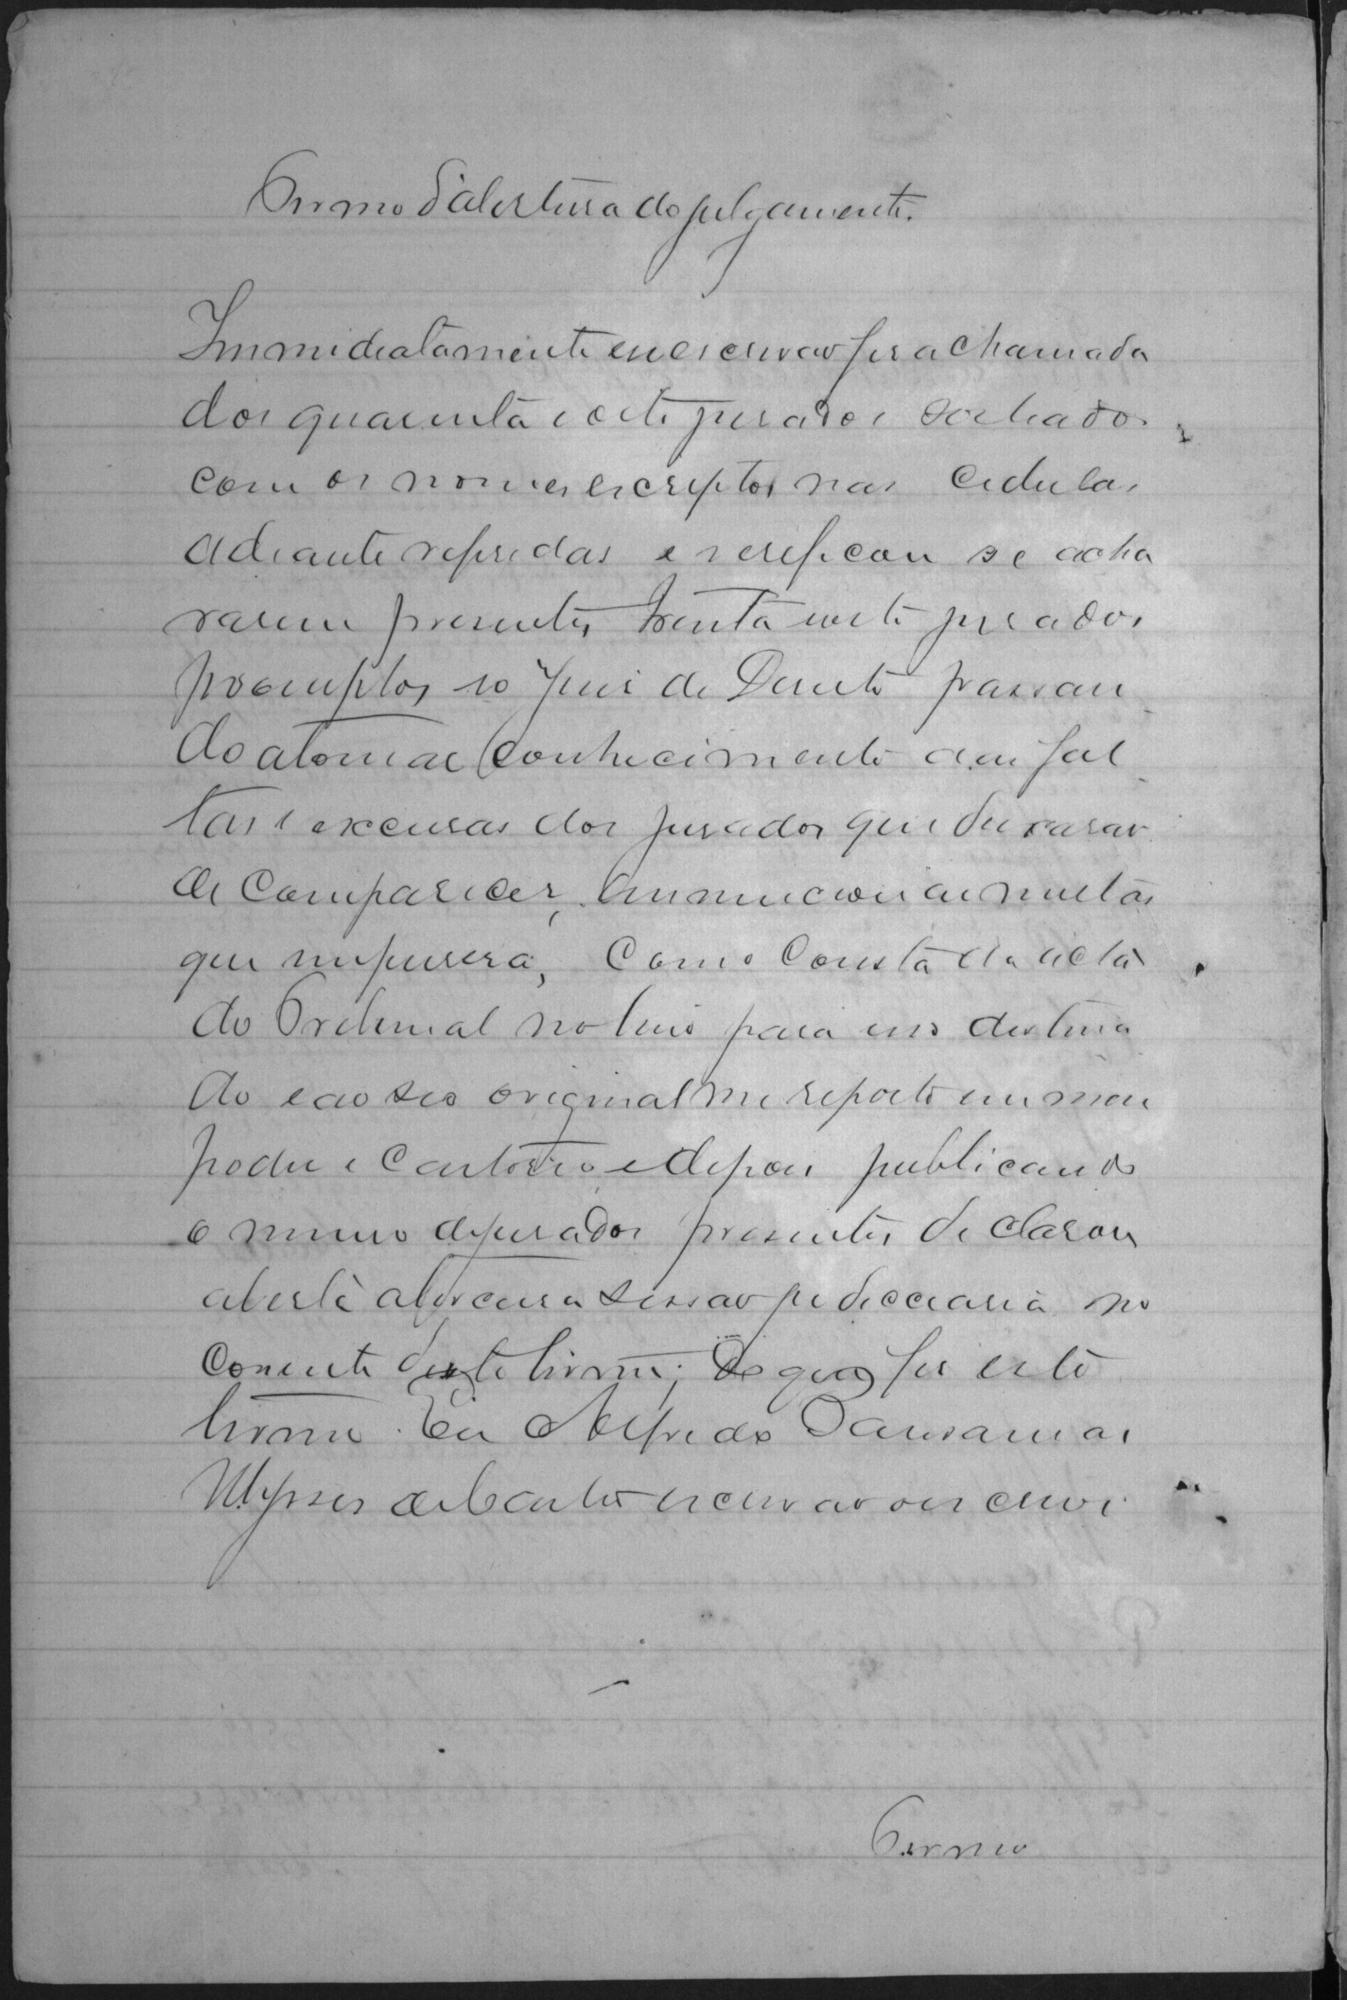 Termo d'abertura do julgamento.
Immidiatamente eu escrivão fis a chamada
dos quarenta e oito jurados sorteados
com os nomes escriptos nas cedulas
adiante referidas e verificou se acha
rarem presentes trinta e oito jurados
promptos e o Juiz de Direito passan
do a tomar conhecimento das fal
tas e excusas dos jurados que deixarão
de comparecer, annunciou as multas
que impusera, como consta da acta
do Tribunal no livro para isso destina
do e ao seo original me reporto em meu
poder e cartorio e depois publicando
o numero de jurados presentes declarou
aberta a sessão judicciaria no
deste termo; Do que fis este
termo. Eu Alfredo
Ulysses de Couto escrivão o escrevi.
Termo